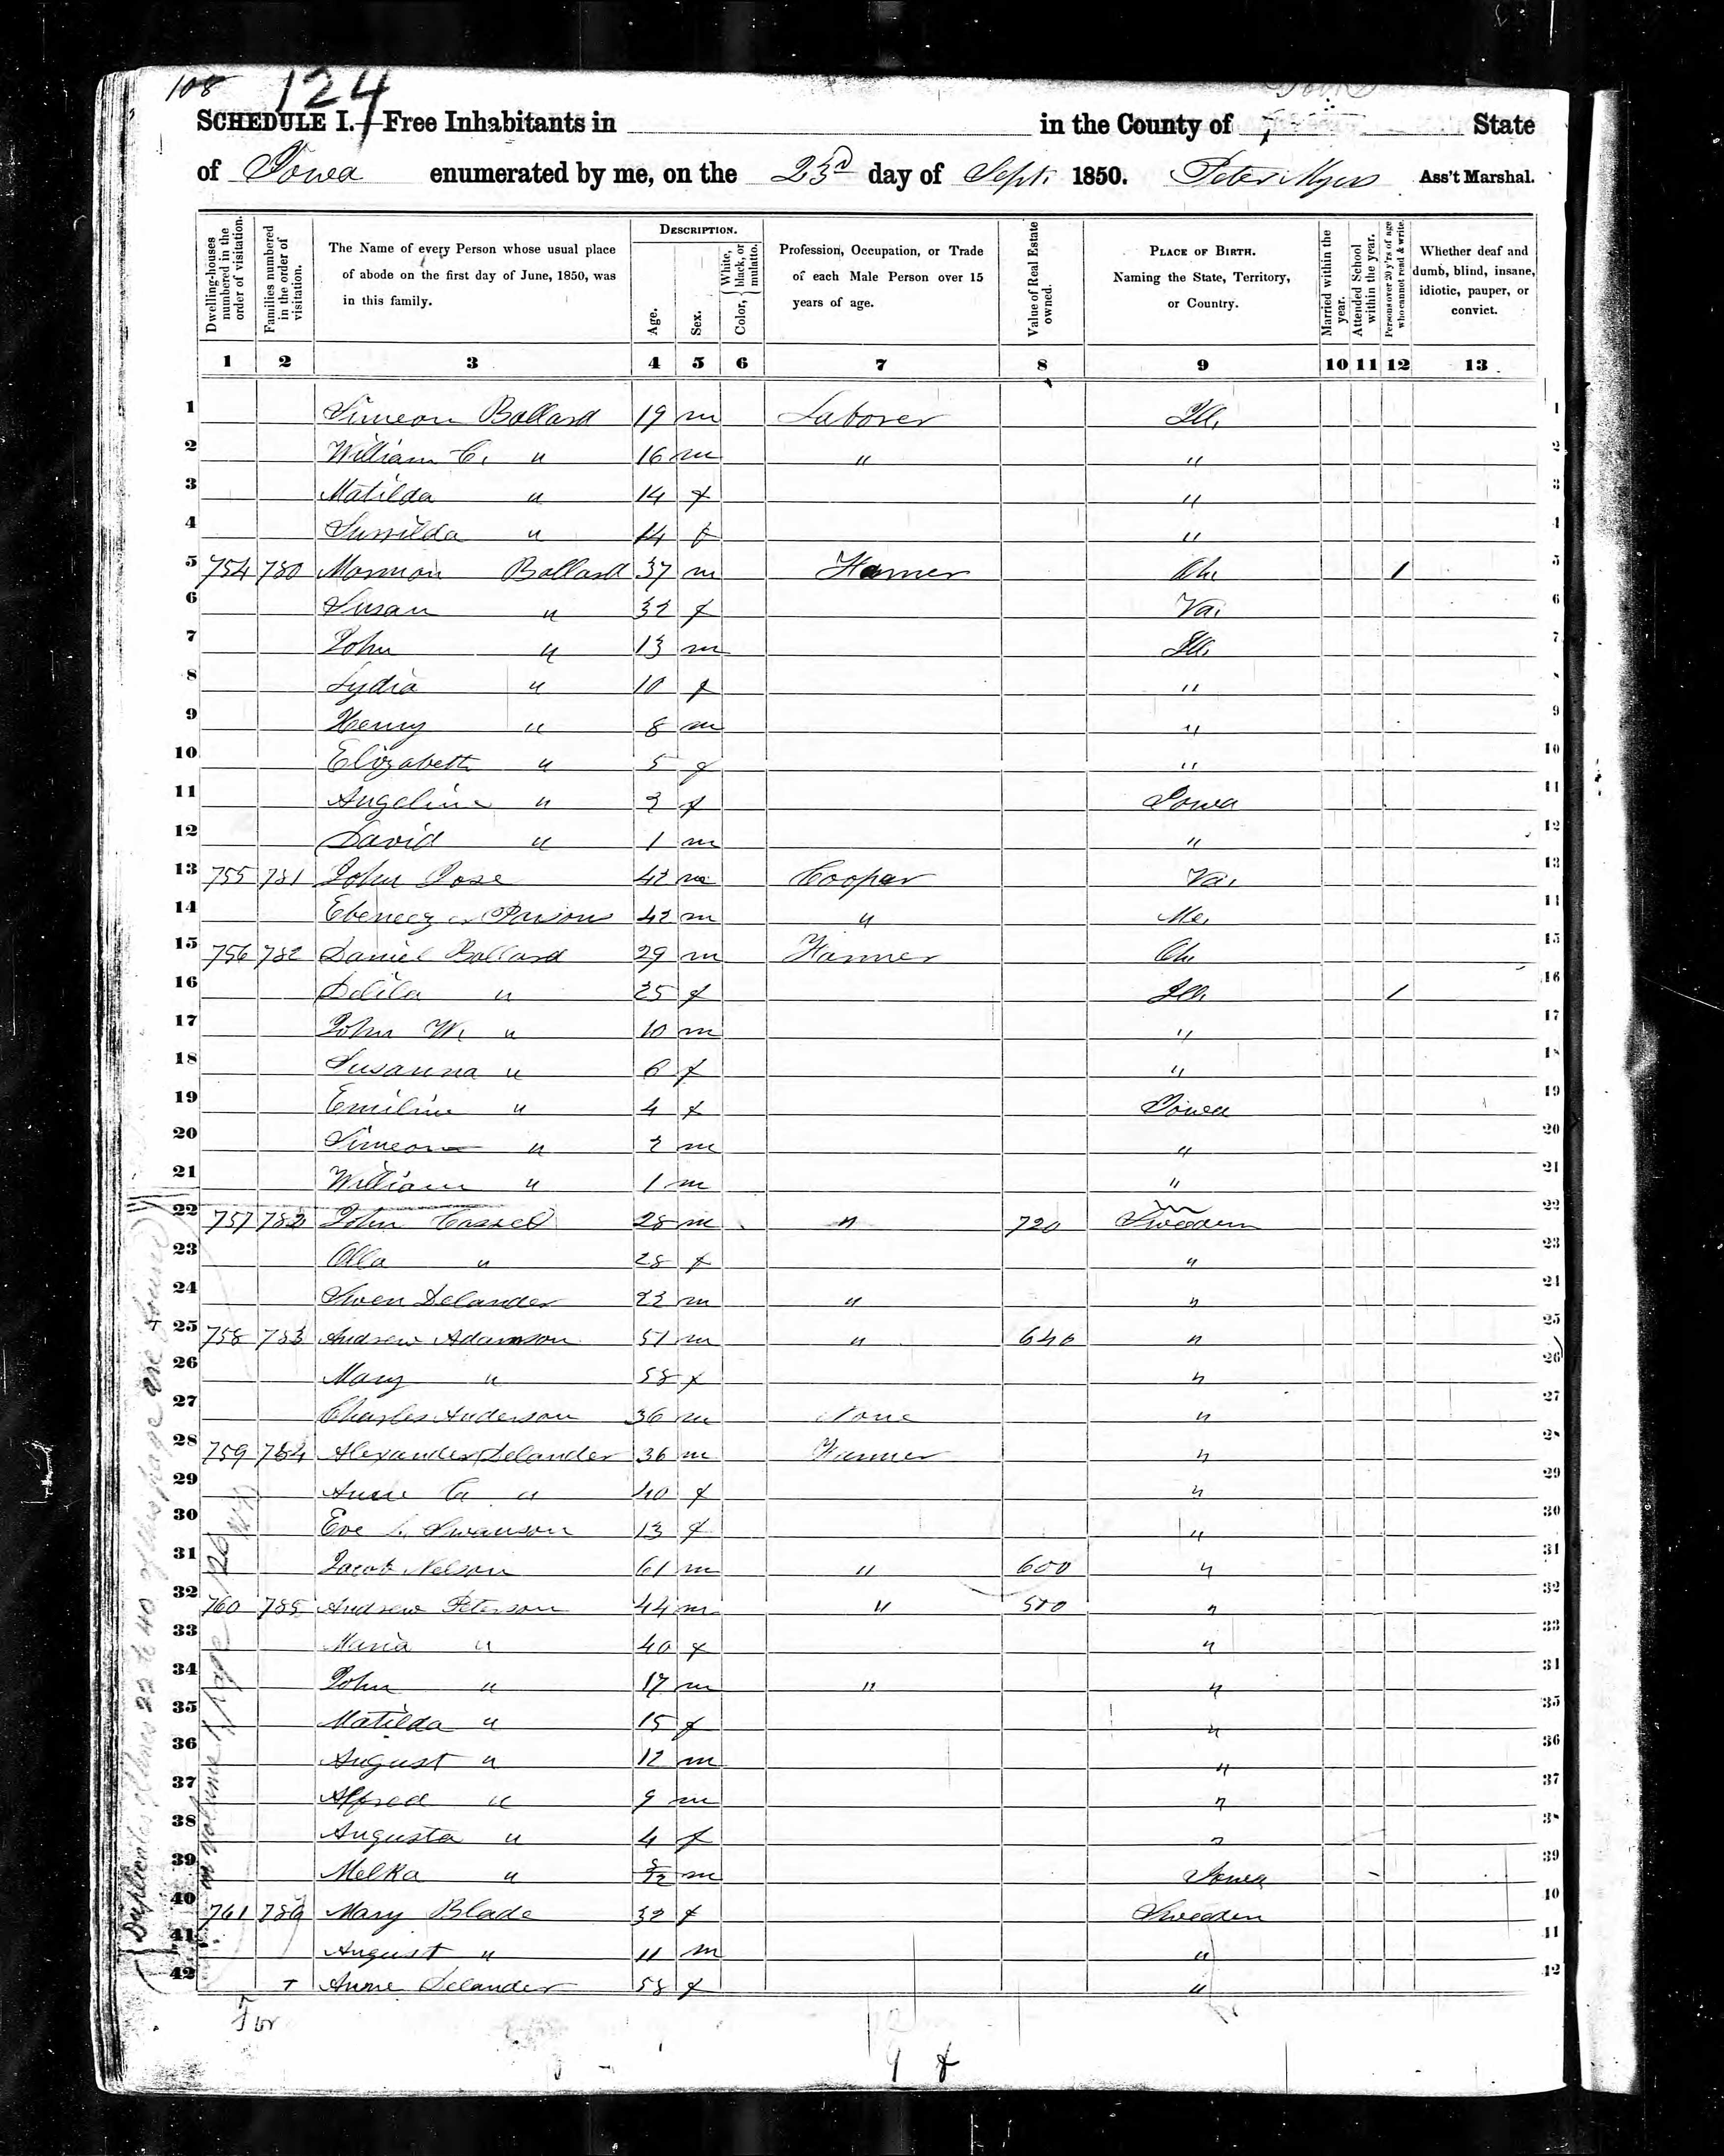 108 124
SCHEDULE I.—Free Inhabitants in in the County of State
of Iowa enumerated by me, on the 23rd day of Sept. 1850. Peter Myers Ass't Marshal.
Dwelling-houses numbered in the order of visitation. Families numbered in the order of visitation. The Name of every Person whose usual place of abode on the first day of June, 1850, was in this family. DESCRIPTION. Age. Sex. Color, { White, black, or mulatto. Profession, Occupation, or Trade of each Male Person over 15 years of age. Value of Real Estate owned. PLACE OF BIRTH. Naming the State, Territory, or Country. Married within the year. Attended School within the year. Persons over 20 y'rs of age who cannot read & write. Whether deaf and dumb, blind, insane, idiotic, pauper, or convict.
1 2 3 4 5 6 7 8 9 10 11 12 13
1 Simeon Ballard 19 m Laborer Ill. 1
2 William C. " 16 m " " 2
3 Matilda " 14 f " 3
4 " 14 f " 4
5 754 780 Mormon Ballard 37 m Farmer Oh. / 5
6 Susan " 32 f Va. 6
7 John " 13 m Ill. 7
8 Lydia " 10 f " 8
9 Henry " 8 m " 9
10 Elizabeth " 5 f " 10
11 Angeline " 3 f Iowa 11
12 David " 1 m " 12
13 755 781 John Rose 42 m Cooper Va. 13
14 42 m " Me. 14
15 756 782 Daniel Ballard 29 m Farmer Oh. 15
16 Delila " 25 f Ill. / 16
17 John W. " 10 m " 17
18 Susanna " 6 f " 18
19 Emiline " 4 f Iowa 19
20 Simeon " 2 m " 20
21 William " 1 m " 21
22 757 782 John Cassel 28 m " 720 Sweden 22
23 Olla " 28 f " 23
24 Swen Delander 22 m " " 24
25 758 783 Andrew Adamson 51 m " 640 " 25
26 Mary " 58 f " 26
27 Charles Anderson 36 m None " 27
28 759 784 Alexander Delander 36 m Farmer " 28
29 Anne C. " 40 f " 29
30 Eve L. Swanson 13 f " 30
31 Jacob Nelson 61 m " 600 " 31
32 760 785 Andrew Peterson 44 m " 500 " 32
33 Maria " 40 f " 33
34 John " 17 m " " 34
35 Matilda " 15 f " 35
36 August " 12 m " 36
37 Alfred " 9 m " 37
38 Augusta " 4 f " 38
39 Melka " m Iowa 39
40 761 786 Mary Blade 32 f Sweden 40
41 August " 11 m " 41
42 Anne Delander 58 f " 42
Duplicates of lines 22 to 40 of this page are found
on volume 1, page 126
9 f